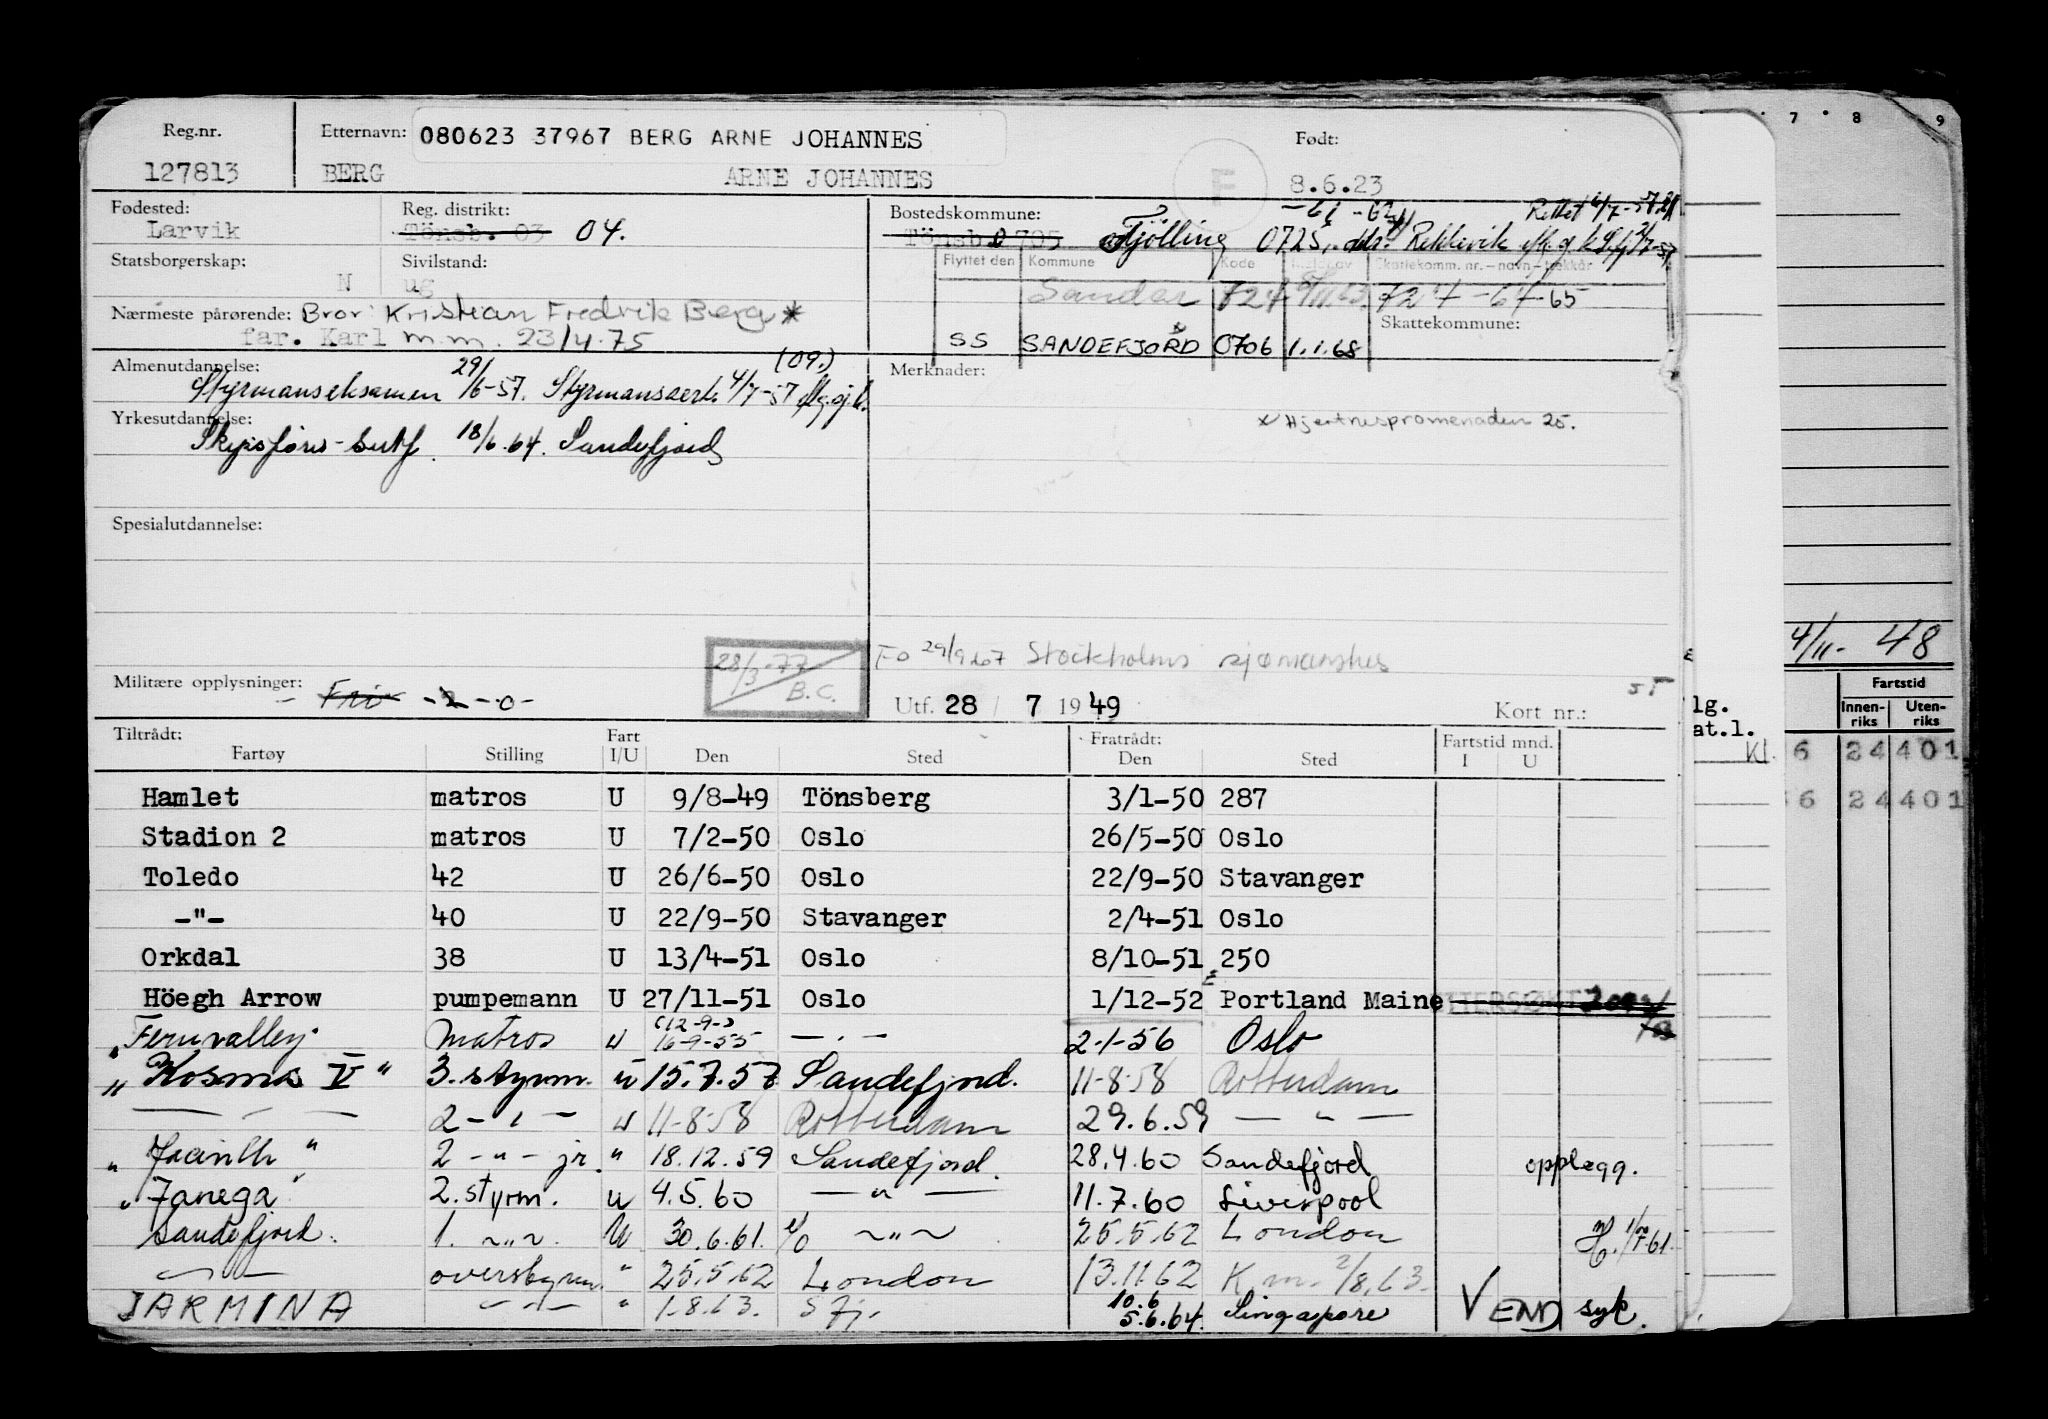 Reg.nr. Etternavn: 080623 37967 BERG ARNE JOHANNES Født:
127813 BERG ARNE JOHANNES F 8.6.23
Fødested: Reg. distrikt: Bostedskommune: Rettet
Larvik Tönsb. 03 04. Tönsb. 0705 Tjölling 0725
Statsborgerskap: Sivilstand: Flyttet den Kommune Kode Skattekomm. nr.—navn—trekkår
N ug Sandar 727 727 -67-65
Nærmeste pårørende: Bror: Kristian Fredrik Berg * Skattekommune:
far. Karl m.m. 23/4.75 SS SANDEFJORD x 0706 1.1.68
Almenutdannelse: (09.) Merknader:
Styrmanseksamen 29/6-57. Styrmanssert. 4/7-57
Yrkesutdannelse: x Hjertnespromenaden 25.
Skipsförer-sertf. 18/6.64. Sandefjord
Spesialutdannelse:
28/3-77 B.C. Fo 29/9 267 Stockholms sjömannshus
Militære opplysninger: - Fri -2-0- ST
Utf. 28 / 7 1949 Kort nr.:
Tiltrådt: Fart Fratrådt: Fartstid mnd.
Fartøy Stilling I/U Den Sted Den Sted I U
Hamlet matros U 9/8-49 Tönsberg 3/1-50 287
Stadion 2 matros U 7/2-50 Oslo 26/5-50 Oslo
Toledo 42 U 26/6-50 Oslo 22/9-50 Stavanger
-"- 40 U 22/9-50 Stavanger 2/4-51 Oslo
Orkdal 38 U 13/4-51 Oslo 8/10-51 250
Höegh Arrow pumpemann U 27/11-51 Oslo 1/12-52 Portland Maine
"Fernvalley" matros u (12-9-) 16-9-55 — " — 2-1-56 Oslo
"Kosmos V" 3. styrm. u 15.7.57 Sandefjord. 11-8-58 Rotterdam
— " — 2 - " - u 11-8-58 Rotterdam 29.6.59 — " —
"Jacinth" 2 - " - jr. " 18.12.59 Sandefjord. 28.4.60 Sandefjord opplegg.
"Janega" 2. styrm. u 4.5.60 — " — 11.7.60 Liverpool
Sandefjord. 1. ~"~. U 30.6.61. ~"~ 25.5.62 London
— " — overstyrm. " 25.5.62 London 13.11.62 K.m. 2/8.63.
JARMINA — " — " 1.8.63. Sfj. 10.6 5.6.64. Singapore VEND syk.
7 8 9
4/11- 48
Fartstid
Innen-riks Uten-riks
lg.
at.l.
Kl. 6 24 401
6 24 401